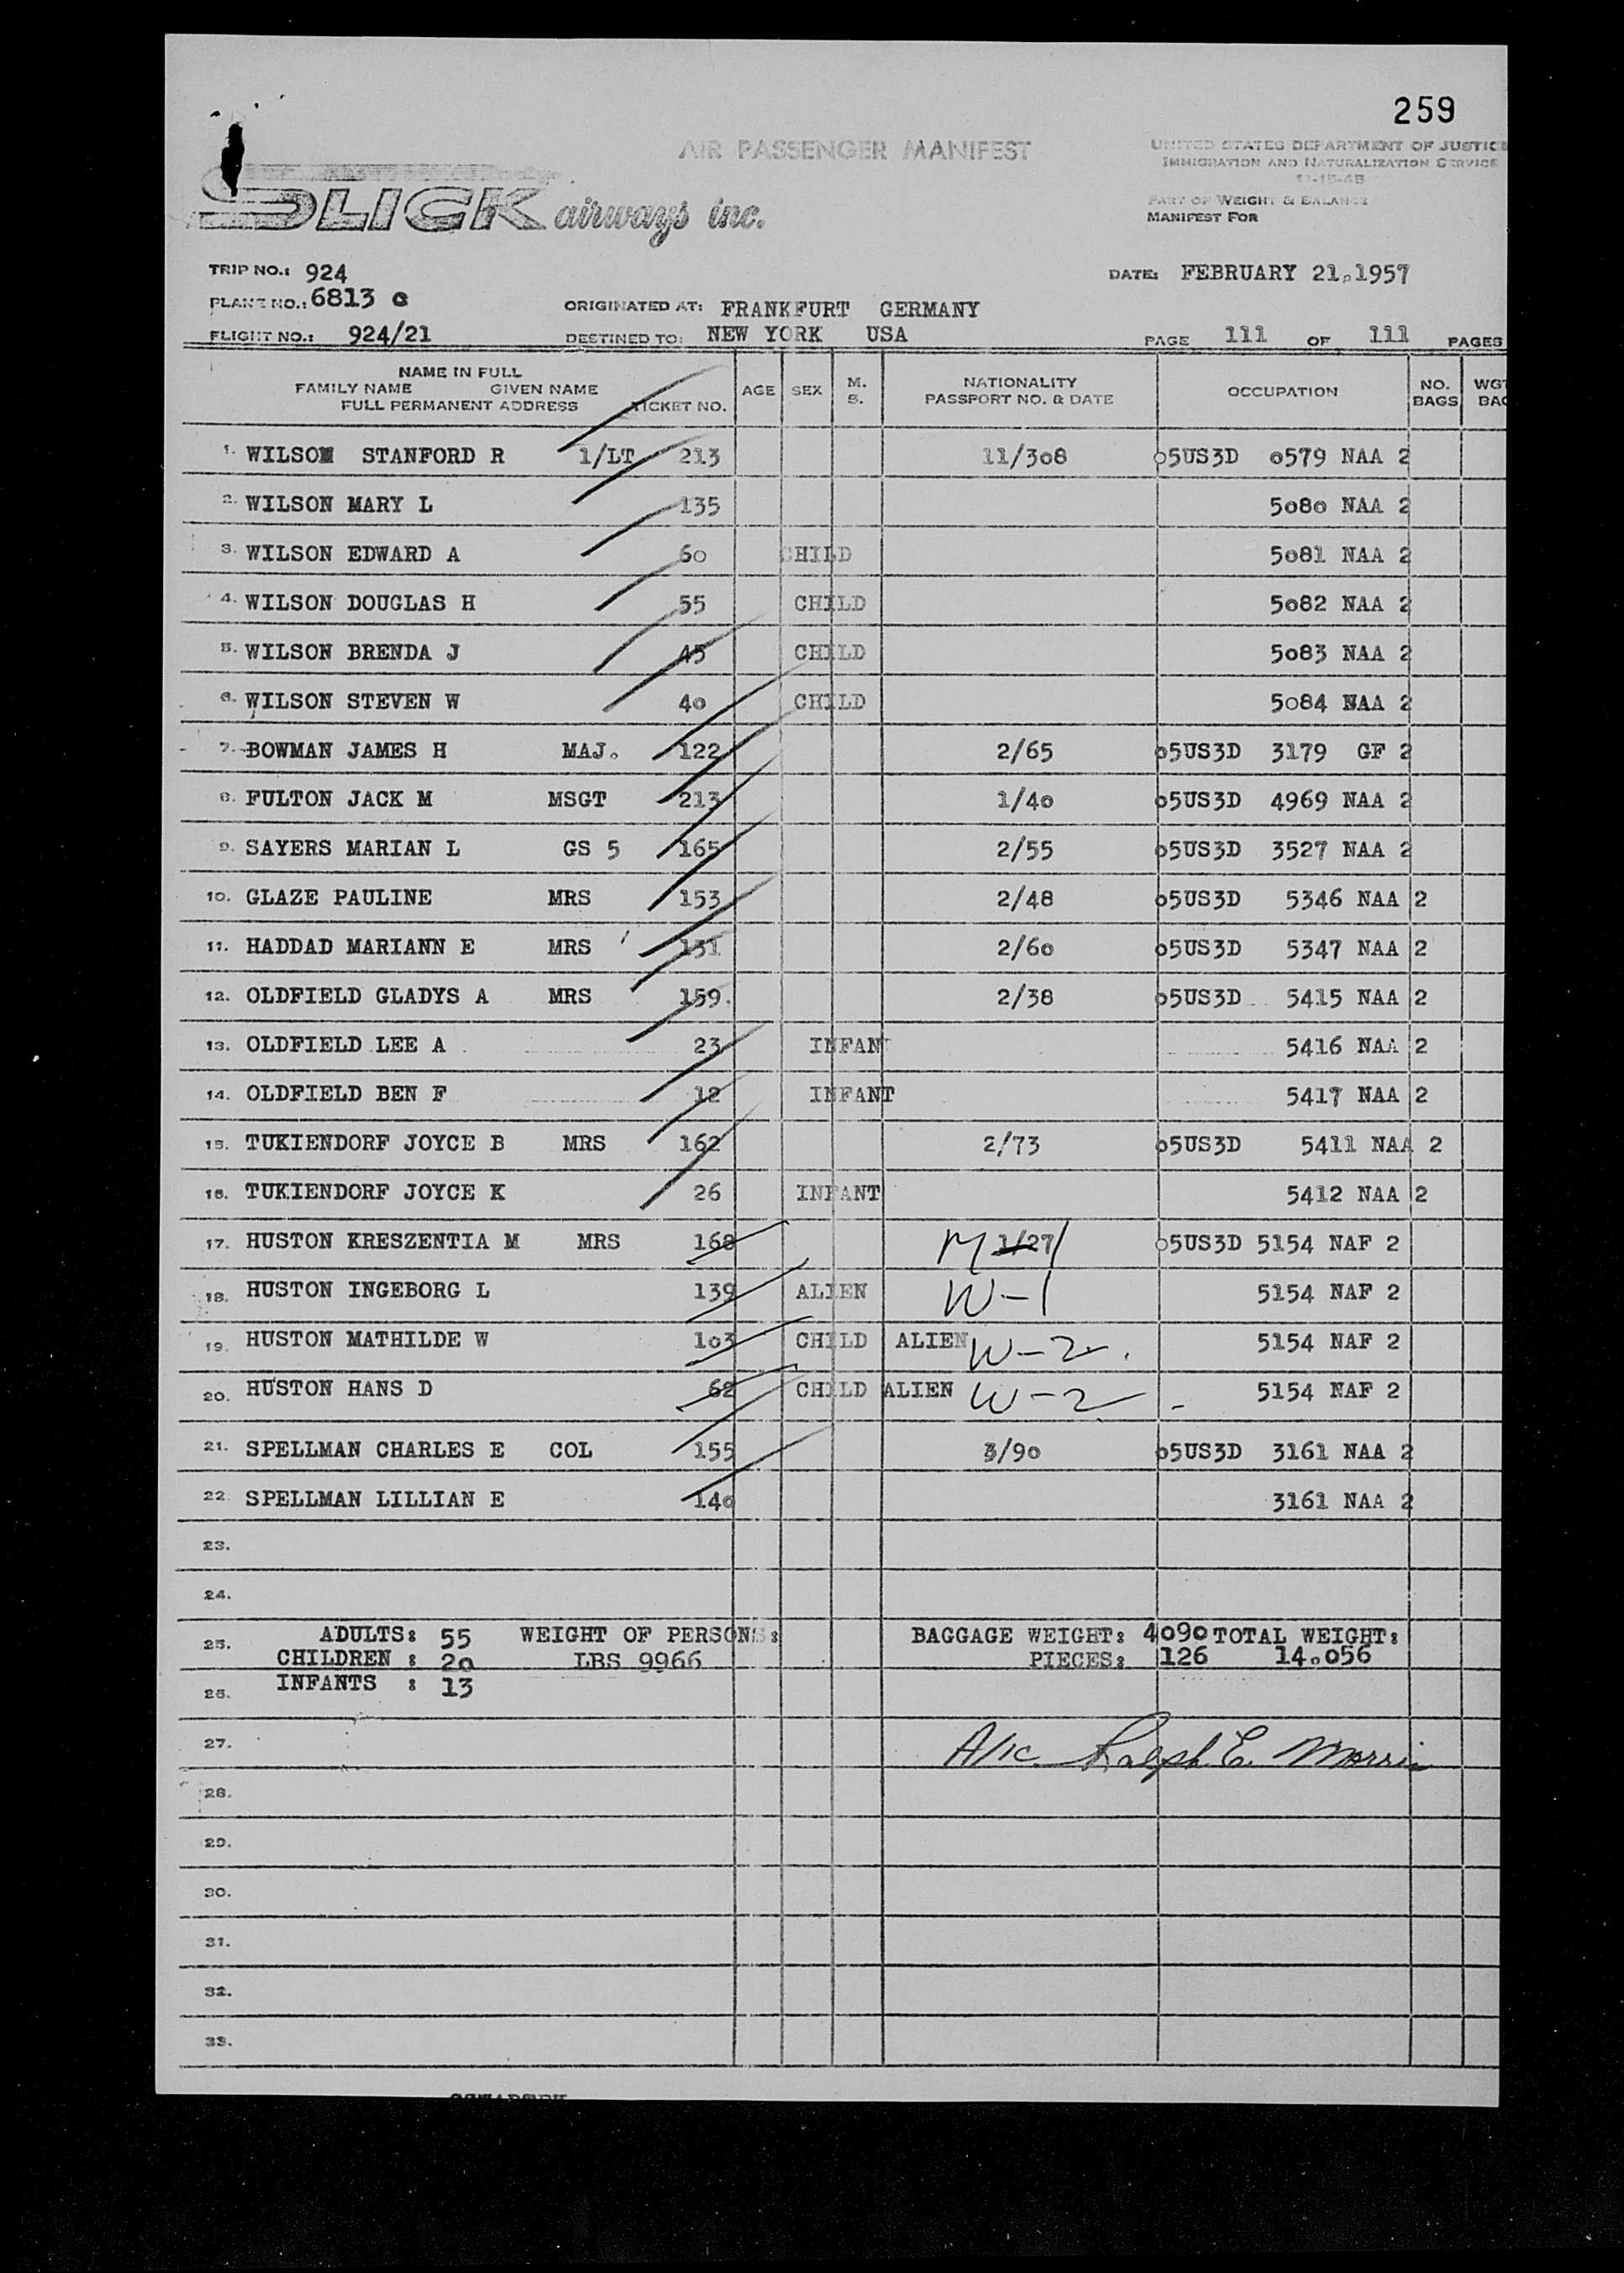 259
AIR PASSENGER MANIFEST
UNITED STATES DEPARTMENT OF JUSTICE
IMMIGRATION AND NATURALIZATION SERVICE
11-15-48
PART OF WEIGHT & BALANCE
MANIFEST FOR
SLICK airways inc.
TRIP NO.: 924
DATE: FEBRUARY 21.1957
PLANE NO.: 6813 C
ORIGINATED AT: FRANKFURT GERMANY
FLIGHT NO.: 924/21
DESTINED TO: NEW YORK USA
PAGE 111 OF 111 PAGES
NAME IN FULL
FAMILY NAME GIVEN NAME
FULL PERMANENT ADDRESS TICKET NO. AGE SEX M. S. NATIONALITY PASSPORT NO. & DATE OCCUPATION NO. BAGS
1. WILSON STANFORD R 1/LT 213 11/308 05US3D 0579 NAA 2
2. WILSON MARY L 135 5080 NAA 2
3. WILSON EDWARD A 60 CHILD 5081 NAA 2
4. WILSON DOUGLAS H 55 CHILD 5082 NAA 2
5. WILSON BRENDA J 45 CHILD 5083 NAA 2
6. WILSON STEVEN W 40 CHILD 5084 NAA 2
7. BOWMAN JAMES H MAJ. 122 2/65 05US3D 3179 GF 2
8. FULTON JACK M MSGT 213 1/40 05US3D 4969 NAA 2
9. SAYERS MARIAN L GS 5 165 2/55 05US3D 3527 NAA 2
10. GLAZE PAULINE MRS 153 2/48 05US3D 5346 NAA 2
11. HADDAD MARIANN E MRS 131 2/60 05US3D 5347 NAA 2
12. OLDFIELD GLADYS A MRS 159. 2/38 05US3D 5415 NAA 2
13. OLDFIELD LEE A 23 INFANT 5416 NAA 2
14. OLDFIELD BEN F 12 INFANT 5417 NAA 2
15. TUKIENDORF JOYCE B MRS 162 2/73 05US3D 5411 NAA 2
16. TUKIENDORF JOYCE K 26 INFANT 5412 NAA 2
17. HUSTON KRESZENTIA M MRS 168 1/27 05US3D 5154 NAF 2
18. HUSTON INGEBORG L 139 ALIEN W-1 5154 NAF 2
19. HUSTON MATHILDE W 103 CHILD ALIEN W-2. 5154 NAF 2
20. HUSTON HANS D 62 CHILD ALIEN W-2 - 5154 NAF 2
21. SPELLMAN CHARLES E COL 155 3/90 05US3D 3161 NAA 2
22 SPELLMAN LILLIAN E 140 3161 NAA 2
23.
24.
25. ADULTS: 55 WEIGHT OF PERSONS: BAGGAGE WEIGHT: 4090 TOTAL WEIGHT:
CHILDREN : 20 LBS 9966 PIECES: 126 14.056
26. INFANTS : 13
27. A/1c Ralph E. Morris
28.
29.
30.
31.
32.
33.